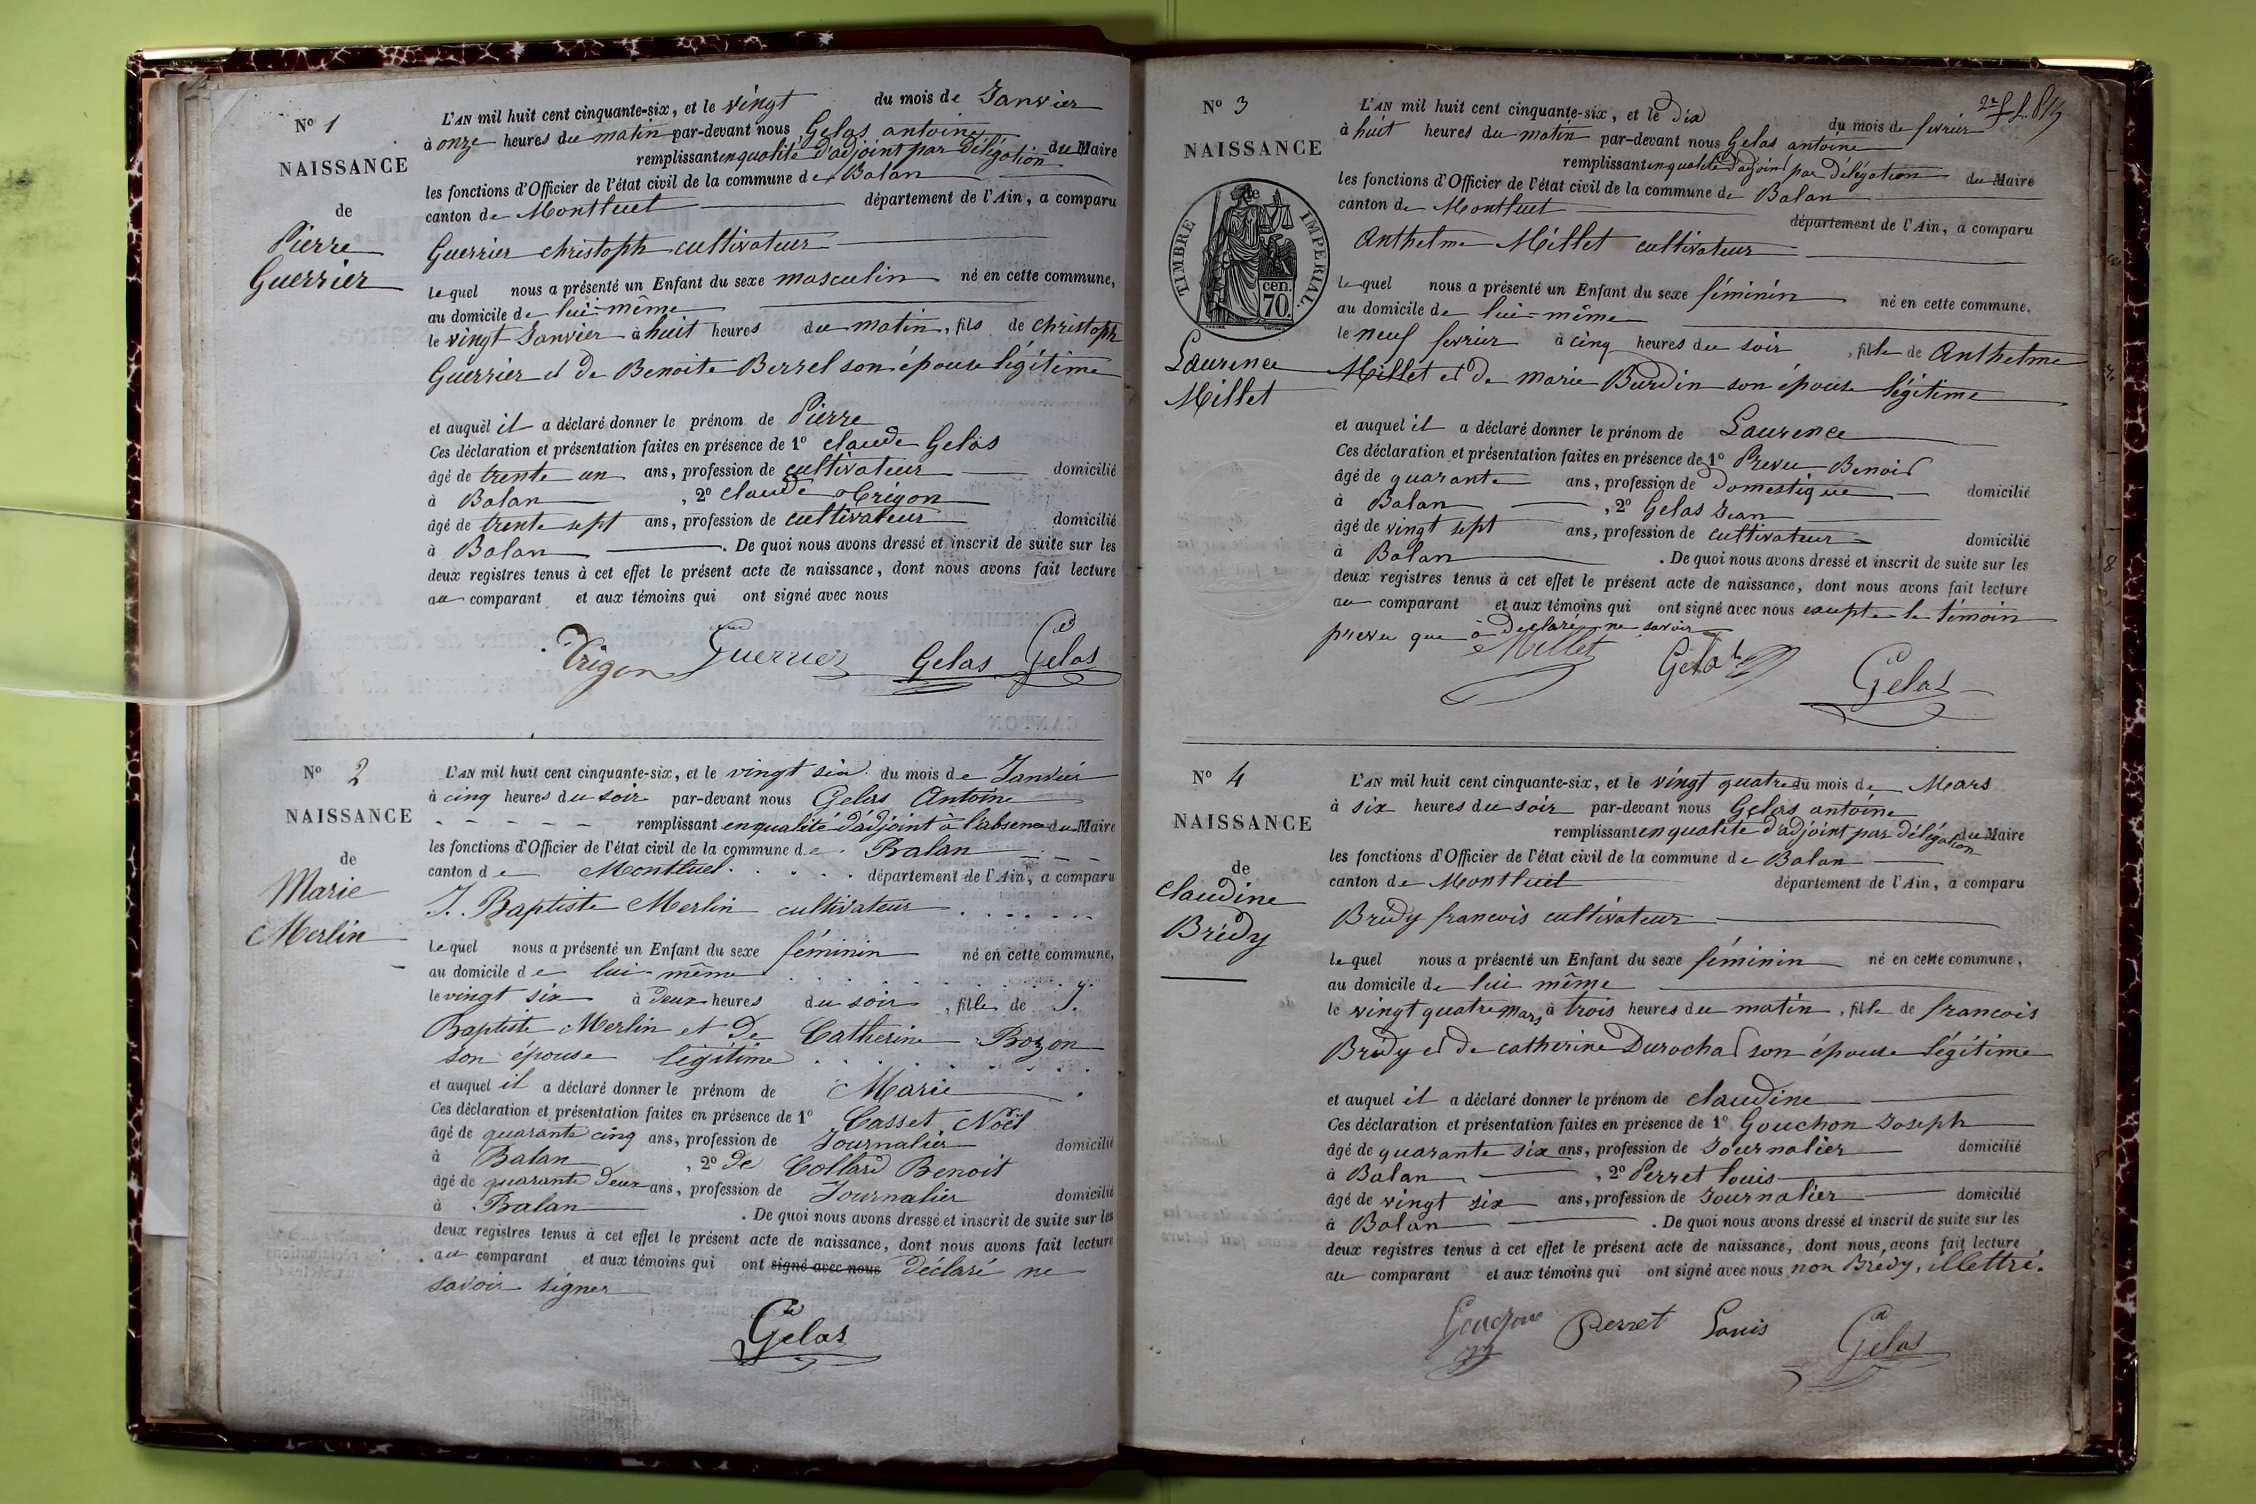 N° 1
NAISSANCE
de
Pierre
Guerrier
L'AN mil huit cent cinquante-six, et le vingt du mois de Janvier
à onze heures du matin par-devant nous Gelas antoine
remplissant en qualité d'adjoint par délégation du Maire
les fonctions d'Officier de l'état civil de la commune de Balan
canton de Montluel département de l'Ain, a comparu
Guerrier christoph cultivateur
lequel nous a présenté un Enfant du sexe masculin né en cette commune,
au domicile de lui-même
le vingt Janvier à huit heures du matin, fils de christoph
Guerrier et de Benoite Berrel son épouse légitime
et auquel il a déclaré donner le prénom de Pierre
Ces déclaration et présentation faites en présence de 1° claude Gelas
âgé de trente un ans, profession de cultivateur domicilié
à Balan, 2° claude Trigon
âgé de trente sept ans, profession de cultivateur domicilié
à Balan. De quoi nous avons dressé et inscrit de suite sur les
deux registres tenus à cet effet le présent acte de naissance, dont nous avons fait lecture
au comparant et aux témoins qui ont signé avec nous
Trigon Guerrier Gelas Gelas
N° 2
NAISSANCE
de
Marie
Merlin
L'AN mil huit cent cinquante-six, et le vingt six du mois de Janvier
à cinq heures du soir par-devant nous Gelas Antoine
remplissant en qualité d'adjoint à l'absence du Maire
les fonctions d'Officier de l'état civil de la commune de Balan
canton de Montluel département de l'Ain, a comparu
J. Baptiste Merlin cultivateur
lequel nous a présenté un Enfant du sexe féminin né en cette commune,
au domicile de lui-même
le vingt six à deux heures du soir, fille de J.
Baptiste Merlin et de Catherine Bozon
son épouse légitime
et auquel il a déclaré donner le prénom de Marie
Ces déclaration et présentation faites en présence de 1° Casset Noël
âgé de quarante cinq ans, profession de Journalier domicilié
à Balan, 2° de Collard Benoit
âgé de quarante deux ans, profession de Journalier domicilié
à Balan. De quoi nous avons dressé et inscrit de suite sur les
deux registres tenus à cet effet le présent acte de naissance, dont nous avons fait lecture
au comparant et aux témoins qui ont signé avec nous déclaré ne
savoir signer
Gelas
N° 3
NAISSANCE
de
TIMBRE IMPERIAL.
cen.
70
Laurence
Millet
L'AN mil huit cent cinquante-six, et le dix du mois de fevrier
à huit heures du matin par-devant nous Gelas antoine
remplissant en qualité d'adjoint par délégation du Maire
les fonctions d'Officier de l'état civil de la commune de Balan
canton de Montluel département de l'Ain, a comparu
Anthelme Millet cultivateur
lequel nous a présenté un Enfant du sexe féminin né en cette commune.
au domicile de lui-même
le neuf fevrier à cinq heures du soir, fille de Anthelme
Millet et de marie Burdin son épouse légitime
et auquel il a déclaré donner le prénom de Laurence
Ces déclaration et présentation faites en présence de 1° Preveu Benoit
âgé de quarante ans, profession de domestique domicilié
à Balan, 2° Gelas Jean
âgé de vingt sept ans, profession de cultivateur domicilié
à Balan. De quoi nous avons dressé et inscrit de suite sur les
deux registres tenus à cet effet le présent acte de naissance, dont nous avons fait lecture
au comparant et aux témoins qui ont signé avec nous excepte le témoin
preveu que a declaré ne savoir
Millet Gelas Gelas
N° 4
NAISSANCE
de
claudine
Brédy
L'AN mil huit cent cinquante-six, et le vingt quatre du mois de Mars
à six heures du soir par-devant nous Gelas antoine
remplissant en qualité d'adjoint par délégation du Maire
les fonctions d'Officier de l'état civil de la commune de Balan
canton de Montluel département de l'Ain, a comparu
Brédy francois cultivateur
lequel nous a présenté un Enfant du sexe féminin né en cette commune,
au domicile de lui même
le vingt quatre mars à trois heures du matin, fille de francois
Brédy et de catherine Durochat son épouse légitime
et auquel il a déclaré donner le prénom de claudine
Ces déclaration et présentation faites en présence de 1° Gouchon Joseph
âgé de quarante six ans, profession de Journalier domicilié
à Balan, 2° Perret louis
âgé de vingt six ans, profession de Journalier domicilié
à Balan. De quoi nous avons dressé et inscrit de suite sur les
deux registres tenus à cet effet le présent acte de naissance, dont nous avons fait lecture
au comparant et aux témoins qui ont signé avec nous non Brédy, illettré.
Gouchon Perret Louis Gelas